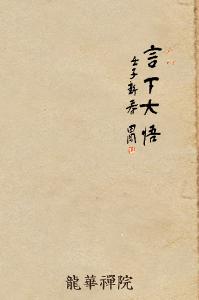 言下大悟
壬子新春
龍華禪院